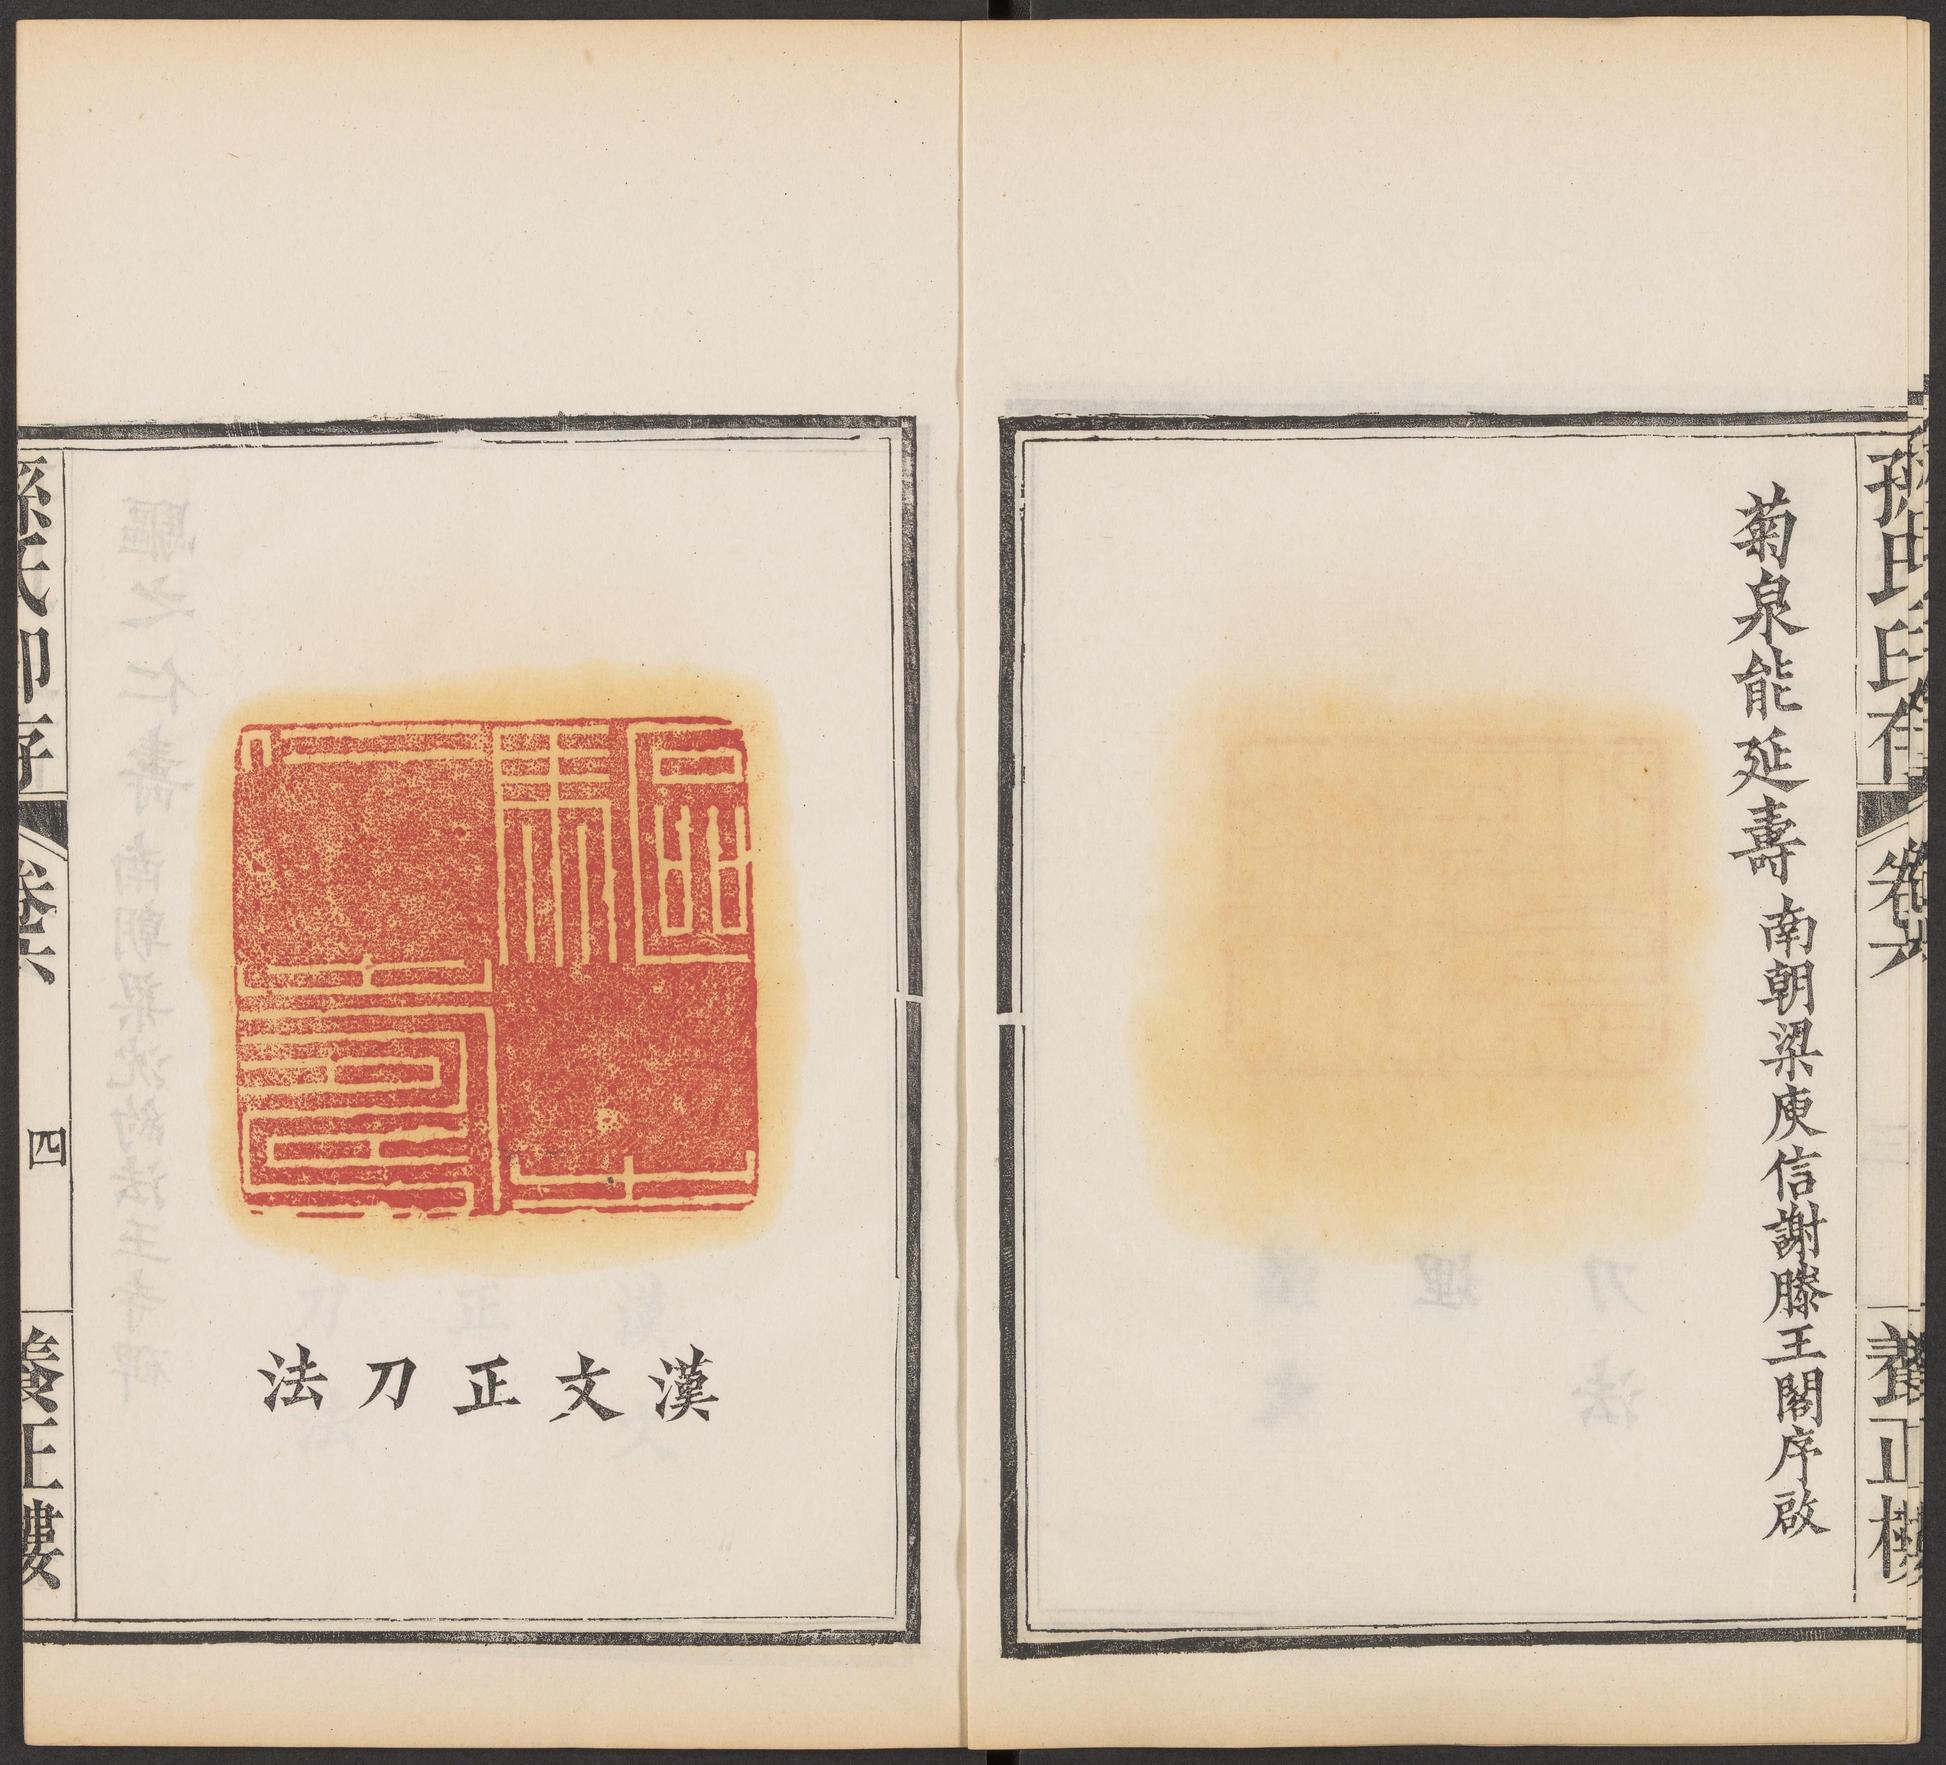 孫氏印存
卷六
養正樓
菊泉能延壽 南朝梁庾信謝滕王閣序啟
漢文正刀法
孫氏印存
卷六
四
養正樓